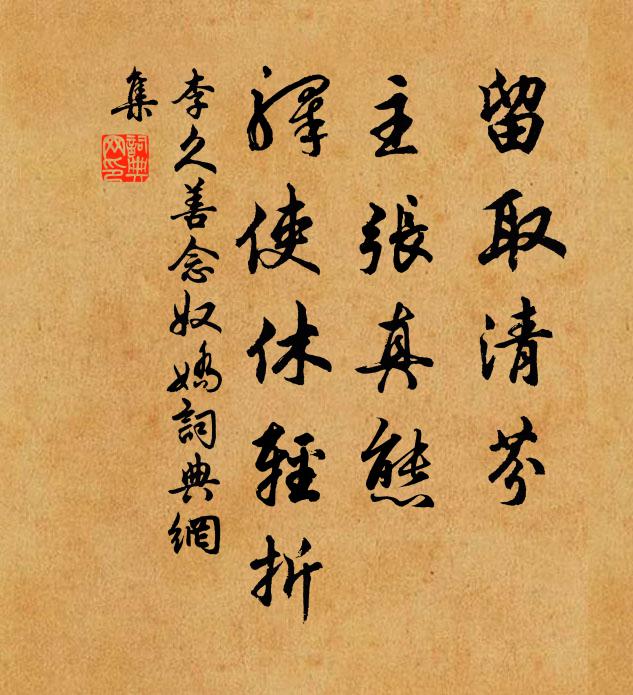 留取清芬
主張真態
驛使休輕折
李久善念奴嬌詞典網
集
詞典
网印